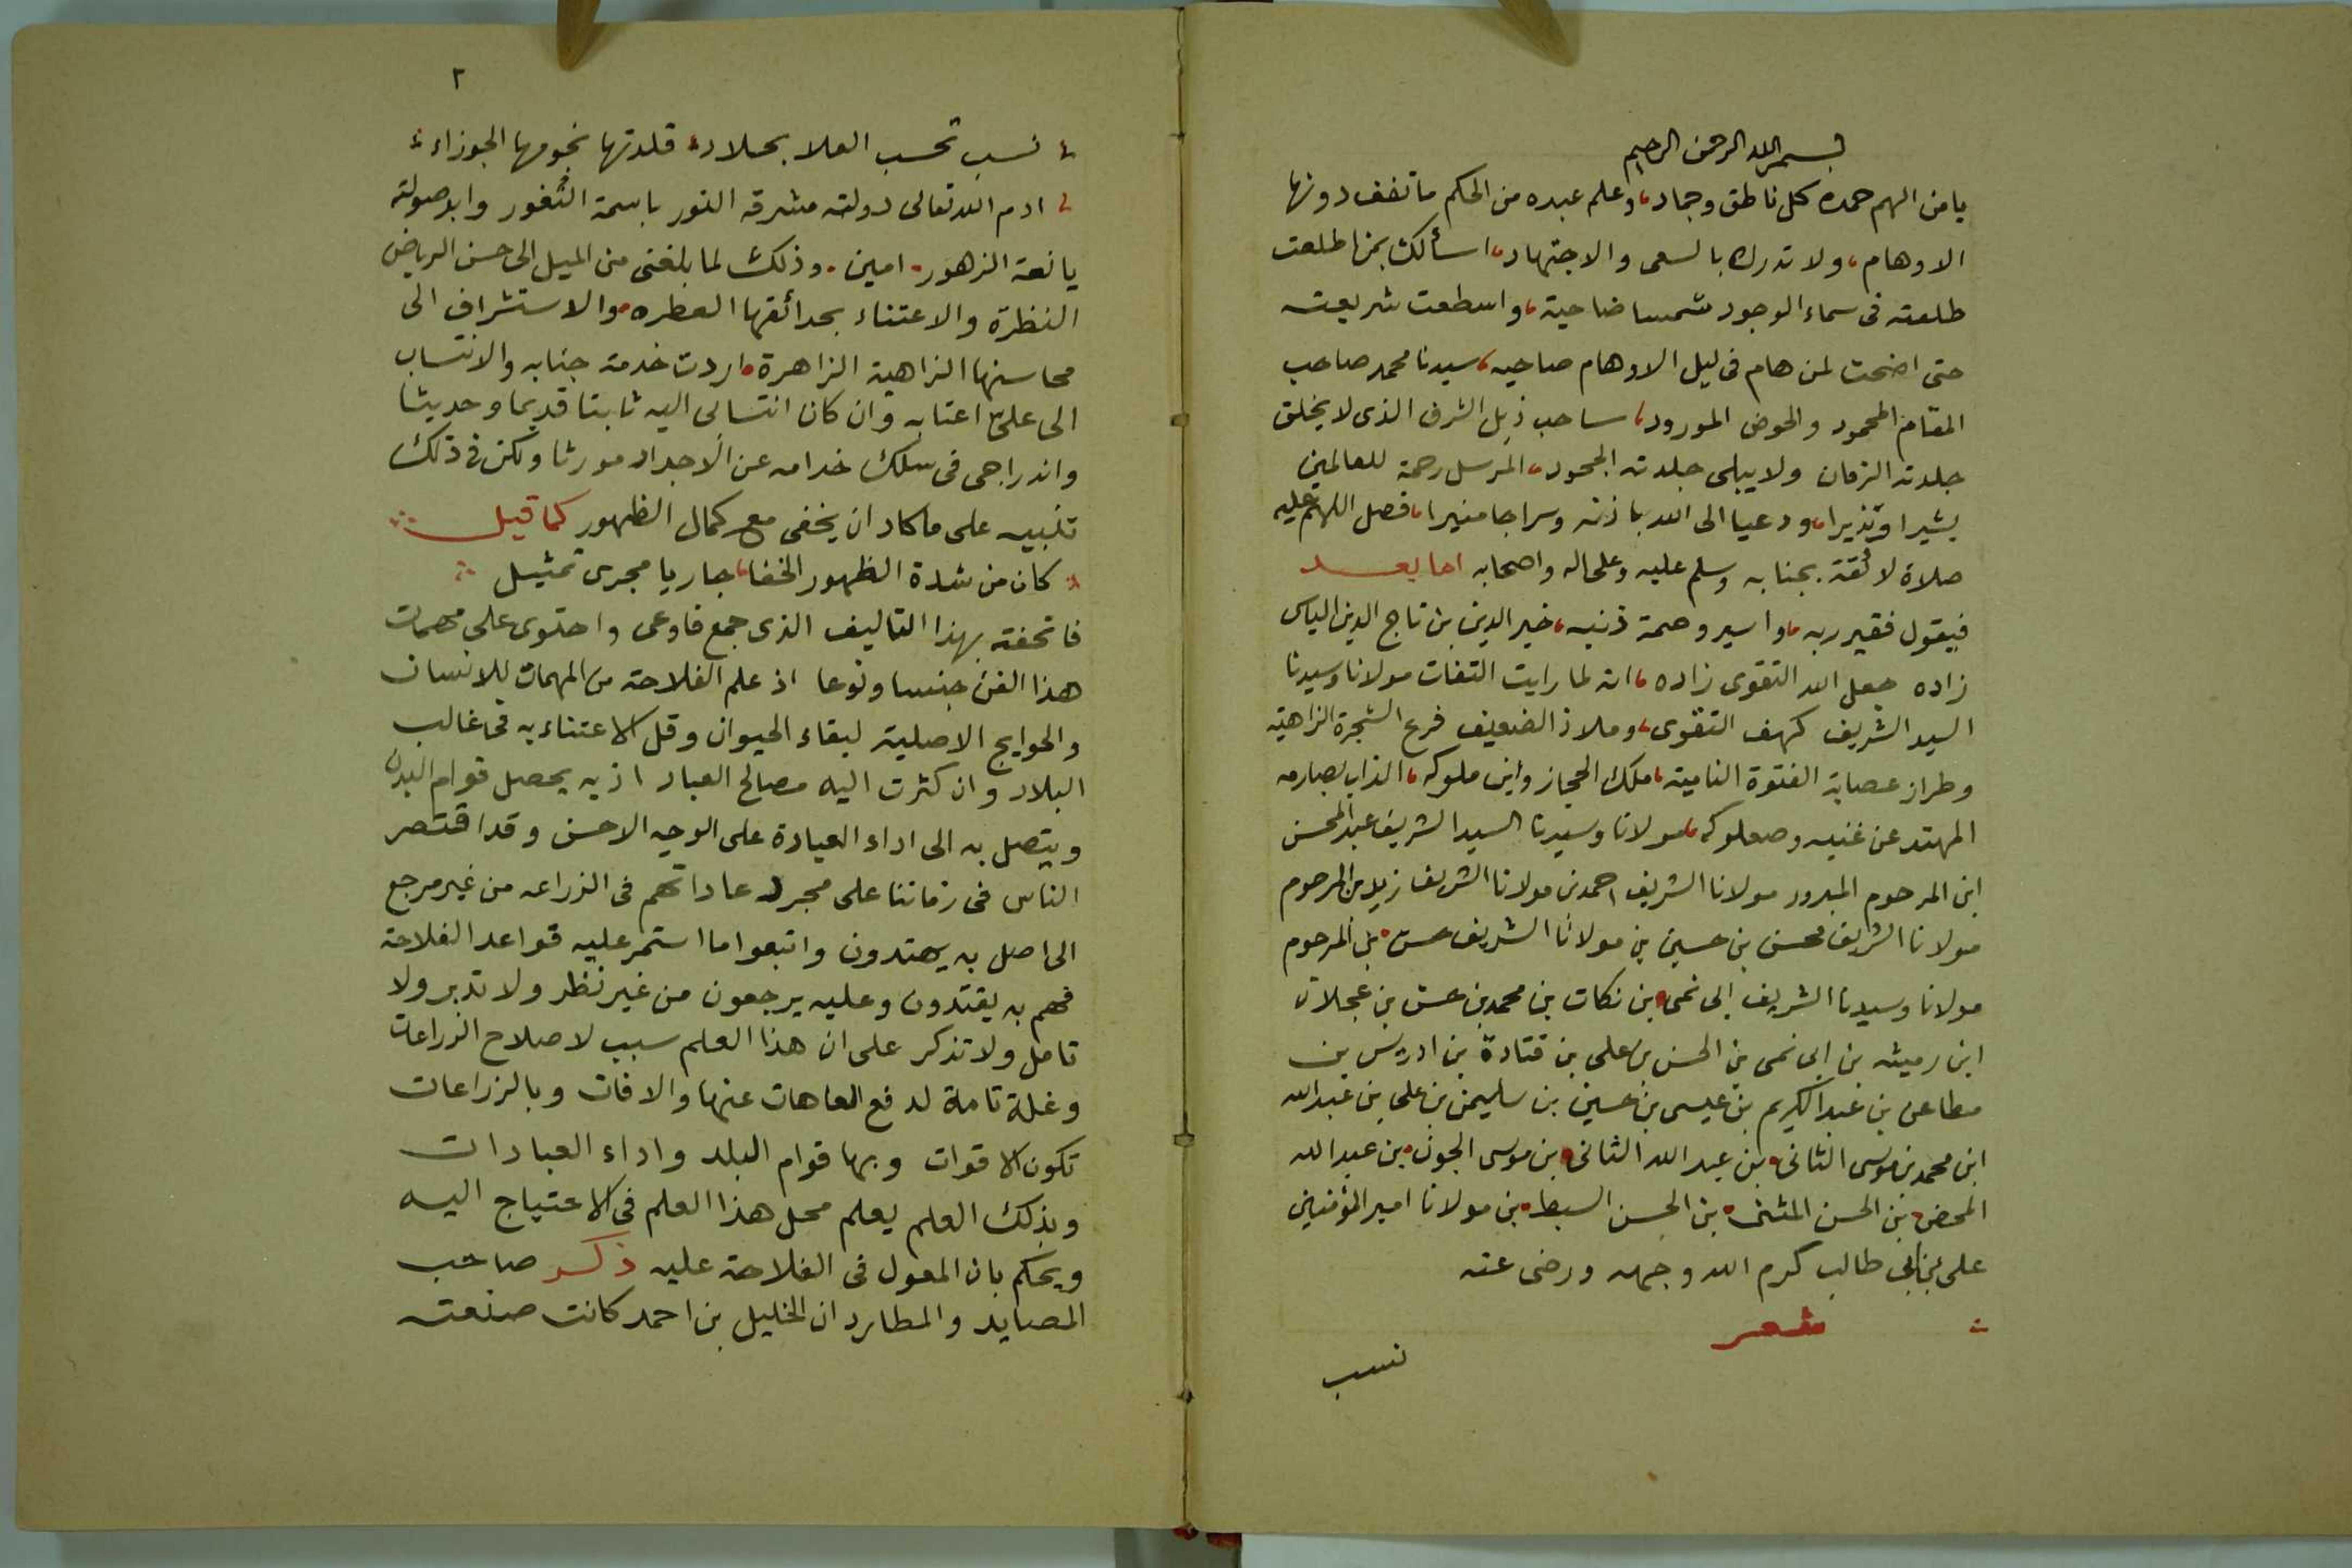 بسم الله الرحمن الرحيم
يا من الهم حمده كل ناطق وجماد، وعلم عبده من الحكم ما تقف دونها
الاوهام، ولا تدرك بالسعى والاجتهاد، اسألك بمن اطلعت
طلعته فى سماء الوجود شمسا ضاحية، واسطعت شريعته
حتى اضحت لمن هام فى ليل الاوهام صاحيه، سيدنا محمد صاحب
المقام المحمود والحوض المورود، ساحب ذيل الشرف الذى لا يخلق
جلدته الزمان ولا يبلى جلدته الجحود، المرسل رحمة للعالمين
بشيرا ونذيرا، ودعيا الى الله باذنه وسراجا منيرا، فصل اللهم عليه
صلاة لائقة بجنابه وسلم عليه وعلى اله واصحابه اما بعد
فيقول فقير ربه، واسير وصمة ذنبه، خير الدين بن تاج الدين الياس
زاده جعل الله التقوى زاده، انه لما رايت التفات مولانا وسيدنا
السيد الشريف كهف التقوى، وملاذ الضعيف فرع الشجرة الزاهية
وطراز عصابة الفتوة النامية، ملك الحجاز وابن ملوكه، الذاب بصارمه
المهند عن غنيه وصعلوكه، مولانا وسيدنا السيد الشريف عبد المحسن
ابن المرحوم المبرور مولانا الشريف احمد بن مولانا الشريف زيد بن المرحوم
مولانا الشريف محسن بن حسين بن مولانا الشريف حسن بن المرحوم
مولانا وسيدنا الشريف ابى نمى بن نكات بن محمد بن حسن بن عجلان
ابن رميثه بن ابى نمى بن الحسن بن على بن قتادة بن ادريس بن
مطاعن بن عبد الكريم بن عيسى بن حسين بن سليمن بن على بن عبد الله
ابن محمد بن موسى الثانى بن عبد الله الثانى بن موسى الجون بن عبد الله
المحض بن الحسن المثنى بن الحسن السبط بن مولانا امير المؤمنين
على بن ابى طالب كرم الله وجهه ورضى عنه
شعر
نسب
٢
نسب تحسب العلا بحلاه قلدتها نجومها الجوزاء
ادم الله تعالى دولته مشرقه النور باسمة الثغور وابوصولته
يانعة الزهور، امين. وذلك لما بلغنى من الميل الى حسن الرياض
النظرة والاعتناء بحدائقها العطره، والاستشراف الى
محاسنها الزاهية الزاهرة، اردت خدمة جنابه والانتساب
الى على اعتابه وان كان انتسابى اليه ثابتا قديما وحديثا
واندراجى فى سلك خدامه عن الاجداد مورثا ولكن فى ذلك
تنبيه على ما كاد ان يخفى مع كمال الظهور كما قيل
كان من شدة الظهور الخفا، جاريا مجرى تمثيل
فاتحفته بهذا التاليف الذى جمع فاوعى واحتوى على مهمات
هذا الفن جنسا ونوعا اذ علم الفلاحة من المهمات للانسان
والحوايج الاصلية لبقاء الحيوان وقل الاعتناء به فى غالب
البلاد وان كثرت اليه مصالح العباد اذ به يحصل قوام البدن
ويتصل به الى اداء العبادة على الوجه الاحسن وقد اقتصر
الناس فى زماننا على مجرد عاداتهم فى الزراعه من غير مرجع
الى اصل به يهتدون واتبعوا ما استمر عليه قواعد الفلاحة
فهم به يقتدون وعليه يرجعون من غير نظر ولا تدبر ولا
تامل ولا تذكر على ان هذا العلم سبب لاصلاح الزراعات
وغلة تامة لدفع العاهات عنها والافات وبالزراعات
تكون الاقوات وبها قوام البلد واداء العبادات
وبذلك العلم يعلم محل هذا العلم فى الاحتياج اليه
ويحكم بان المعول فى الفلاحة عليه ذكر صاحب
المصايد والمطارد ان الخليل بن احمد كانت صنعته